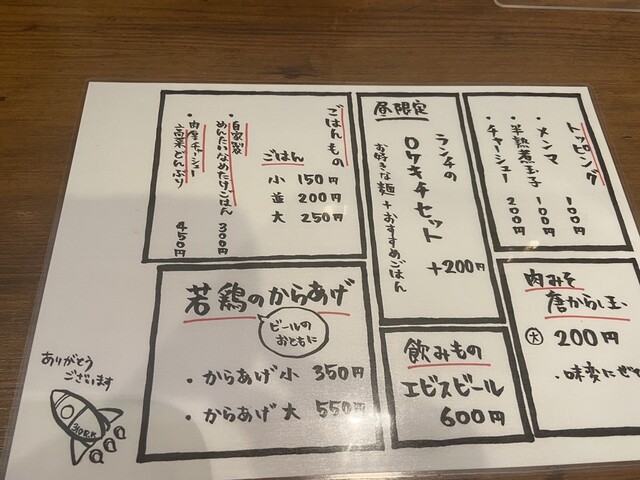 トッピング
・メンマ 100円
・半熟煮玉子 100円
・チャーシュー 200円
昼限定
ランチの
ロケキチセット
お好きな麺+おすすめごはん
+200円
ごはんもの
ごはん
小 150円
並 200円
大 250円
・自家製
めんたいなめたけごはん 300円
・肉厚チャーシュー
高菜どんぶり 450円
肉みそ
唐からし玉
大 200円
・味変にぜひ
若鶏のからあげ
ビールの
おともに
・からあげ小 350円
・からあげ大 550円
飲みもの
エビスビール
600円
ありがとう
ございます